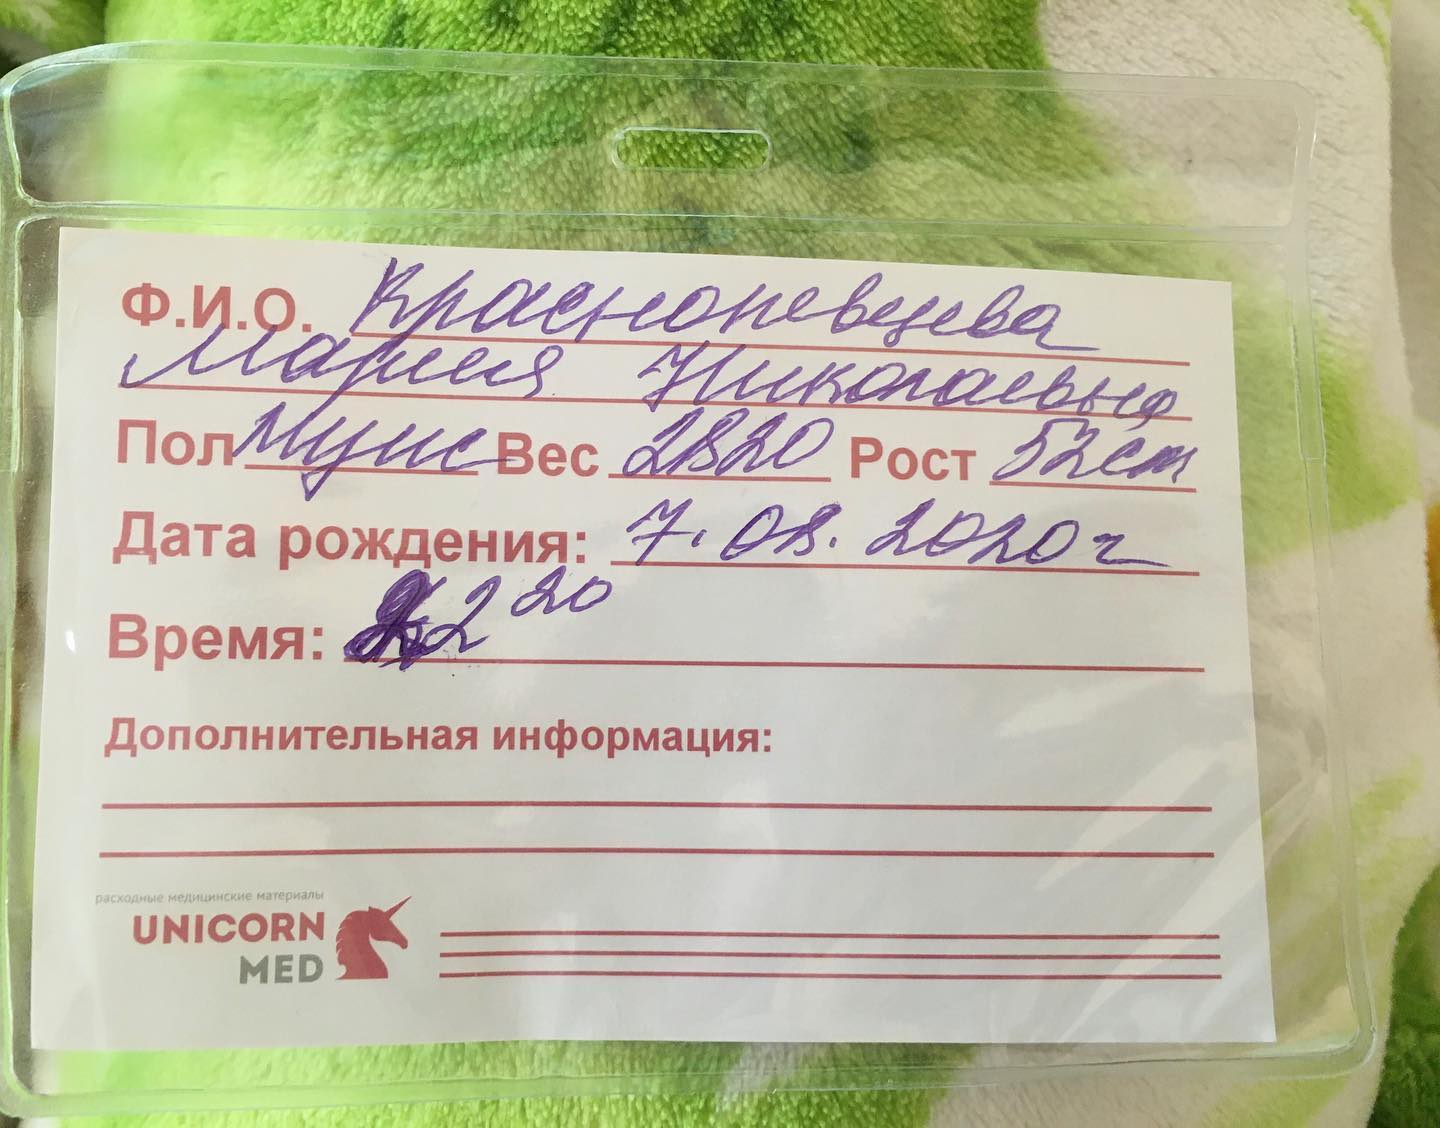 Ф.И.О. Краснопевцева
Мария Николаевна
Пол Мужс Вес 2820 Рост 52см
Дата рождения: 7.08.2020г
Время: 22 20
Дополнительная информация:
расходные медицинские материалы
UNICORN
MED